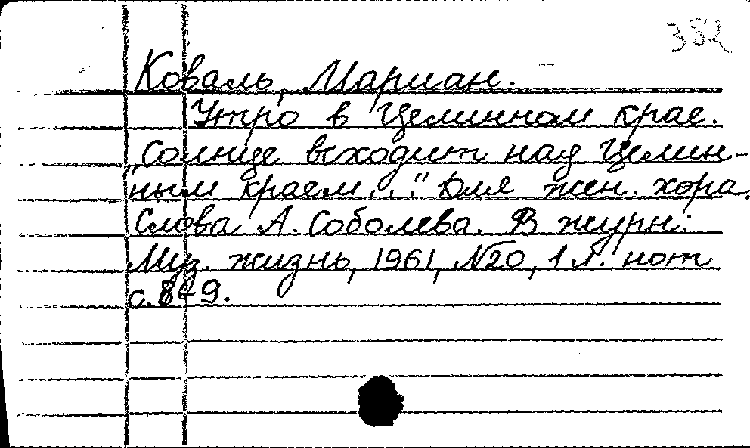 382
Коваль, Мариан.
Утро в Целинном крае.
"Солнце всходит над Целин-
ным краем..." Для жен. хора.
Слова А. Соболева. В журн.:
Муз. жизнь, 1961, №20, 1 л. нот
с. 8-9.